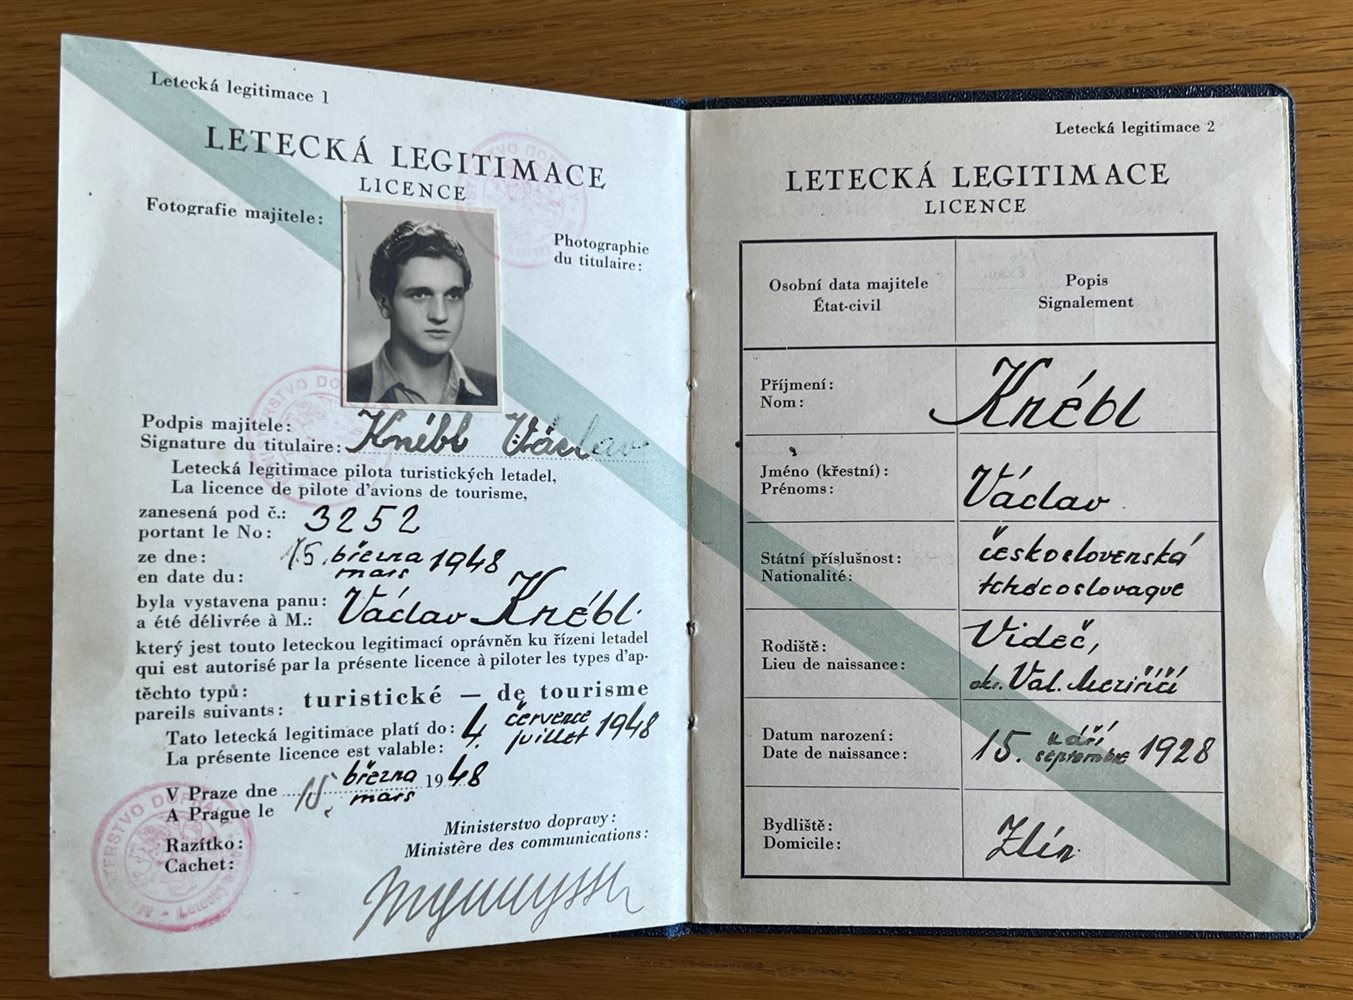 Letecká legitimace 1
LETECKÁ LEGITIMACE
LICENCE
Fotografie majitele:
Photographie
du titulaire:
Podpis majitele:
Signature du titulaire: Knébl Václav
Letecká legitimace pilota turistických letadel,
La licence de pilote d'avions de tourisme,
zanesená pod č.:
portant le No: 3252
ze dne: 15. března 1948
en date du: mars
byla vystavena panu:
a été délivrée à M.: Václav Knébl.
který jest touto leteckou legitimací oprávněn ku řízení letadel
qui est autorisé par la présente licence à piloter les types d'ap-
těchto typů:
pareils suivants: turistické — de tourisme
Tato letecká legitimace platí do: 4. července 1948
La présente licence est valable: juillet
V Praze dne 15. března 1948
A Prague le mars
Ministerstvo dopravy:
Ministère des communications:
Razítko:
Cachet:
Letecká legitimace 2
LETECKÁ LEGITIMACE
LICENCE
Osobní data majitele
État-civil
Popis
Signalement
Příjmení:
Nom:
Knébl
Jméno (křestní):
Prénoms:
Václav
Státní příslušnost:
Nationalité:
československá
tchécoslovaque
Rodiště:
Lieu de naissance:
Videč,
okr. Val. Meziříčí
Datum narození:
Date de naissance:
15. září 1928
septembre
Bydliště:
Domicile:
Zlín